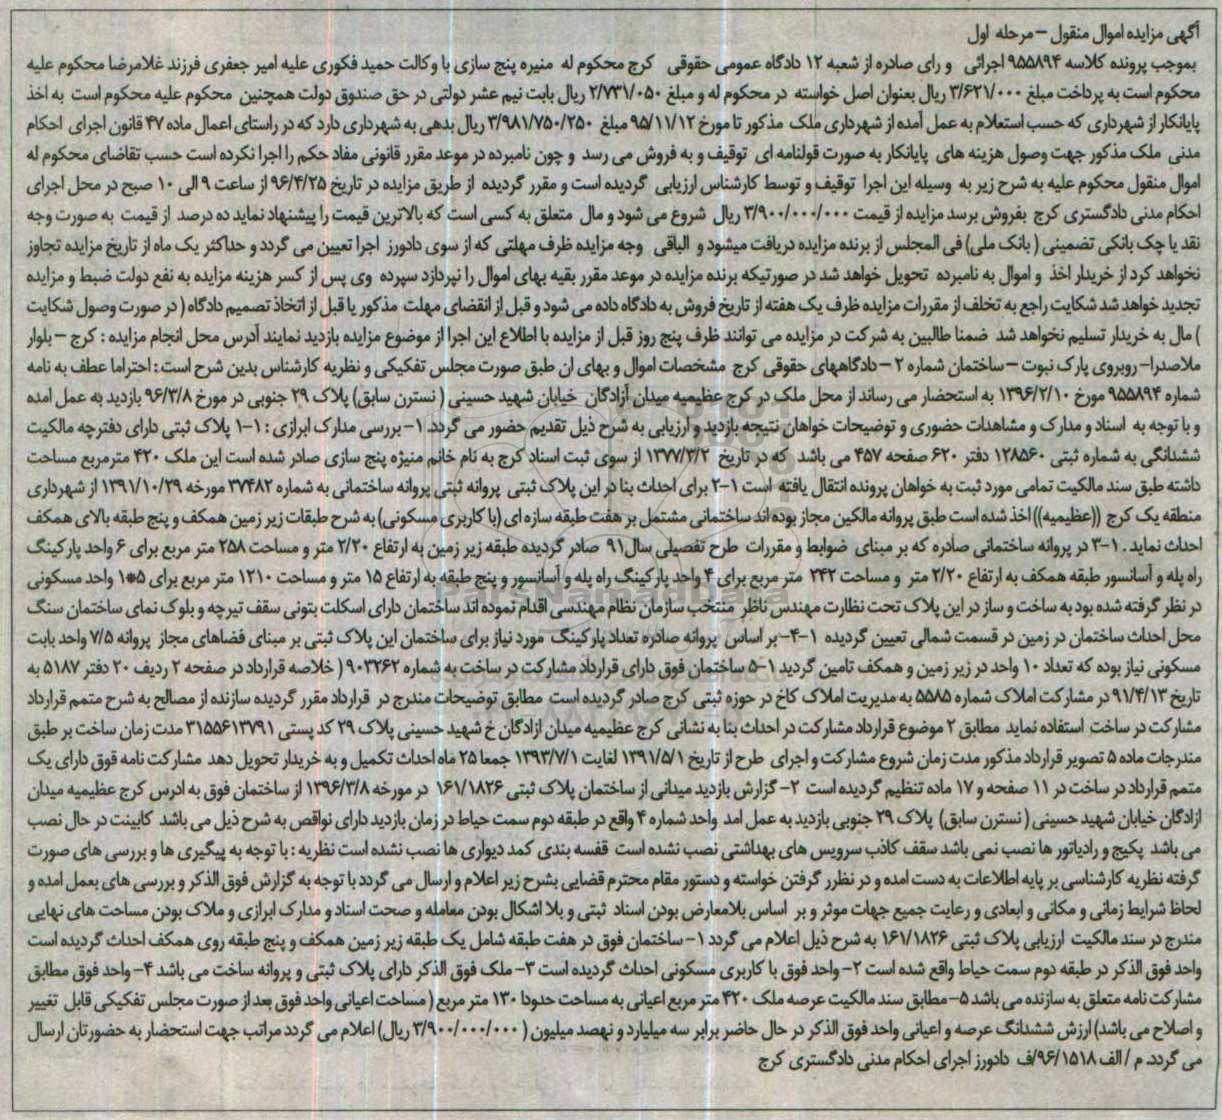 آگهی مزایده اموال منقول – مرحله اول
بموجب پرونده کلاسه ۹۵۵۸۹۴ اجرائی و رای صادره از شعبه ۱۲ دادگاه عمومی حقوقی کرج محکوم له منیره پنج سازی با وکالت حمید فکوری علیه امیر جعفری فرزند غلامرضا محکوم علیه
محکوم است به پرداخت مبلغ ۳/۶۲۱/۰۰۰ ریال بعنوان اصل خواسته در محکوم له و مبلغ ۲/۷۳۱/۰۵۰ ریال بابت نیم عشر دولتی در حق صندوق دولت همچنین محکوم علیه محکوم است به اخذ
پایانکار از شهرداری که حسب استعلام به عمل آمده از شهرداری ملک مذکور تا مورخ ۹۵/۱۱/۱۲ مبلغ ۳/۹۸۱/۷۵۰/۲۵۰ ریال بدهی به شهرداری دارد که در راستای اعمال ماده ۴۷ قانون اجرای احکام
مدنی ملک مذکور جهت وصول هزینه های پایانکار به صورت قولنامه ای توقیف و به فروش می رسد و چون نامبرده در موعد مقرر قانونی مفاد حکم را اجرا نکرده است حسب تقاضای محکوم له
اموال منقول محکوم علیه به شرح زیر به وسیله این اجرا توقیف و توسط کارشناس ارزیابی گردیده است و مقرر گردیده از طریق مزایده در تاریخ ۹۶/۴/۲۵ از ساعت ۹ الی ۱۰ صبح در محل اجرای
احکام مدنی دادگستری کرج بفروش برسد مزایده از قیمت ۳/۹۰۰/۰۰۰/۰۰۰ ریال شروع می شود و مال متعلق به کسی است که بالاترین قیمت را پیشنهاد نماید ده درصد از قیمت به صورت وجه
نقد یا چک بانکی تضمینی ( بانک ملی) فی المجلس از برنده مزایده دریافت میشود و الباقی وجه مزایده ظرف مهلتی که از سوی دادورز اجرا تعیین می گردد و حداکثر یک ماه از تاریخ مزایده تجاوز
نخواهد کرد از خریدار اخذ و اموال به نامبرده تحویل خواهد شد در صورتیکه برنده مزایده در موعد مقرر بقیه بهای اموال را نپردازد سپرده وی پس از کسر هزینه مزایده به نفع دولت ضبط و مزایده
تجدید خواهد شد شکایت راجع به تخلف از مقررات مزایده ظرف یک هفته از تاریخ فروش به دادگاه داده می شود و قبل از انقضای مهلت مذکور یا قبل از اتخاذ تصمیم دادگاه ( در صورت وصول شکایت
) مال به خریدار تسلیم نخواهد شد ضمنا طالبین به شرکت در مزایده می توانند ظرف پنج روز قبل از مزایده با اطلاع این اجرا از موضوع مزایده بازدید نمایند آدرس محل انجام مزایده : کرج – بلوار
ملاصدرا– روبروی پارک نبوت – ساختمان شماره ۲ – دادگاههای حقوقی کرج مشخصات اموال و بهای ان طبق صورت مجلس تفکیکی و نظریه کارشناس بدین شرح است : احتراما عطف به نامه
شماره ۹۵۵۸۹۴ مورخ ۱۳۹۶/۲/۱۰ به استحضار می رساند از محل ملک در کرج عظیمیه میدان آزادگان خیابان شهید حسینی ( نسترن سابق) پلاک ۲۹ جنوبی در مورخ ۹۶/۳/۸ بازدید به عمل امده
و با توجه به اسناد و مدارک و مشاهدات حضوری و توضیحات خواهان نتیجه بازدید و ارزیابی به شرح ذیل تقدیم حضور می گردد. ۱– بررسی مدارک ابرازی : ۱–۱ پلاک ثبتی دارای دفترچه مالکیت
ششدانگی به شماره ثبتی ۱۲۸۵۶۰ دفتر ۶۲۰ صفحه ۴۵۷ می باشد که در تاریخ ۱۳۷۷/۳/۲ از سوی ثبت اسناد کرج به نام خانم منیژه پنج سازی صادر شده است این ملک ۴۲۰ مترمربع مساحت
داشته طبق سند مالکیت تمامی مورد ثبت به خواهان پرونده انتقال یافته است ۱–۲ برای احداث بنا در این پلاک ثبتی پروانه ثبتی پروانه ساختمانی به شماره ۳۷۴۸۲ مورخه ۱۳۹۱/۱۰/۲۹ از شهرداری
منطقه یک کرج ((عظیمیه)) اخذ شده است طبق پروانه مالکین مجاز بوده اند ساختمانی مشتمل بر هفت طبقه سازه ای (با کاربری مسکونی) به شرح طبقات زیر زمین همکف و پنج طبقه بالای همکف
احداث نماید . ۱–۳ در پروانه ساختمانی صادره که بر مبنای ضوابط و مقررات طرح تفصیلی سال۹۱ صادر گردیده طبقه زیر زمین به ارتفاع ۲/۲۰ متر و مساحت ۲۵۸ متر مربع برای ۶ واحد پارکینگ
راه پله و آسانسور طبقه همکف به ارتفاع ۲/۲۰ متر و مساحت ۲۴۲ متر مربع برای ۴ واحد پارکینگ راه پله و آسانسور و پنج طبقه به ارتفاع ۱۵ متر و مساحت ۱۲۱۰ متر مربع برای ۵*۱ واحد مسکونی
در نظر گرفته شده بود به ساخت و ساز در این پلاک تحت نظارت مهندس ناظر منتخب سازمان نظام مهندسی اقدام نموده اند ساختمان دارای اسکلت بتونی سقف تیرچه و بلوک نمای ساختمان سنگ
محل احداث ساختمان در زمین در قسمت شمالی تعیین گردیده ۱–۴– بر اساس پروانه صادره تعداد پارکینگ مورد نیاز برای ساختمان این پلاک ثبتی بر مبنای فضاهای مجاز پروانه ۷/۵ واحد بابت
مسکونی نیاز بوده که تعداد ۱۰ واحد در زیر زمین و همکف تامین گردید ۱–۵ ساختمان فوق دارای قرارداد مشارکت در ساخت به شماره ۹۰۳۲۶۲ ( خلاصه قرارداد در صفحه ۲ ردیف ۲۰ دفتر ۵۱۸۷ به
تاریخ ۹۱/۴/۱۳ در مشارکت املاک شماره ۵۵۸۵ به مدیریت املاک کاخ در حوزه ثبتی کرج صادر گردیده است مطابق توضیحات مندرج در قرارداد مقرر گردیده سازنده از مصالح به شرح متمم قرارداد
مشارکت در ساخت استفاده نماید مطابق ۲ موضوع قرارداد مشارکت در احداث بنا به نشانی کرج عظیمیه میدان ازادگان خ شهید حسینی پلاک ۲۹ کد پستی ۳۱۵۵۶۱۳۷۹۱ مدت زمان ساخت بر طبق
مندرجات ماده ۵ تصویر قرارداد مذکور مدت زمان شروع مشارکت و اجرای طرح از تاریخ ۱۳۹۱/۵/۱ لغایت ۱۳۹۳/۷/۱ جمعا ۲۵ ماه احداث تکمیل و به خریدار تحویل دهد مشارکت نامه فوق دارای یک
متمم قرارداد در ساخت در ۱۱ صفحه و ۱۷ ماده تنظیم گردیده است ۲– گزارش بازدید میدانی از ساختمان پلاک ثبتی ۱۶۱/۱۸۲۶ در مورخه ۱۳۹۶/۳/۸ از ساختمان فوق به ادرس کرج عظیمیه میدان
ازادگان خیابان شهید حسینی ( نسترن سابق) پلاک ۲۹ جنوبی بازدید به عمل امد واحد شماره ۴ واقع در طبقه دوم سمت حیاط در زمان بازدید دارای نواقص به شرح ذیل می باشد کابینت در حال نصب
می باشد پکیج و رادیاتور ها نصب نمی باشد سقف کاذب سرویس های بهداشتی نصب نشده است قفسه بندی کمد دیواری ها نصب نشده است نظریه : با توجه به پیگیری ها و بررسی های صورت
گرفته نظریه کارشناسی بر پایه اطلاعات به دست امده و در نظرر گرفتن خواسته و دستور مقام محترم قضایی بشرح زیر اعلام و ارسال می گردد با توجه به گزارش فوق الذکر و بررسی های بعمل امده و
لحاظ شرایط زمانی و مکانی و ابعادی و رعایت جمیع جهات موثر و بر اساس بلامعارض بودن اسناد ثبتی و بلا اشکال بودن معامله و صحت اسناد و مدارک ابرازی و ملاک بودن مساحت های نهایی
مندرج در سند مالکیت ارزیابی پلاک ثبتی ۱۶۱/۱۸۲۶ به شرح ذیل اعلام می گردد ۱– ساختمان فوق در هفت طبقه شامل یک طبقه زیر زمین همکف و پنج طبقه روی همکف احداث گردیده است
واحد فوق الذکر در طبقه دوم سمت حیاط واقع شده است ۲– واحد فوق با کاربری مسکونی احداث گردیده است ۳– ملک فوق الذکر دارای پلاک ثبتی و پروانه ساخت می باشد ۴– واحد فوق مطابق
مشارکت نامه متعلق به سازنده می باشد ۵– مطابق سند مالکیت عرصه ملک ۴۲۰ متر مربع اعیانی به مساحت حدودا ۱۳۰ متر مربع ( مساحت اعیانی واحد فوق بعد از صورت مجلس تفکیکی قابل تغییر
و اصلاح می باشد) ارزش ششدانگ عرصه و اعیانی واحد فوق الذکر در حال حاضر برابر سه میلیارد و نهصد میلیون ( ۳/۹۰۰/۰۰۰/۰۰۰ ریال) اعلام می گردد مراتب جهت استحضار به حضورتان ارسال
می گردد. م / الف ۹۶/۱۵۱۸/ف دادورز اجرای احکام مدنی دادگستری کرج
ParsNamadData